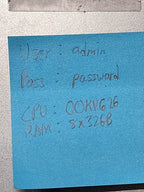 User : admin
Pass : password
CPU : 00KVG26
RAM : 8x32GB